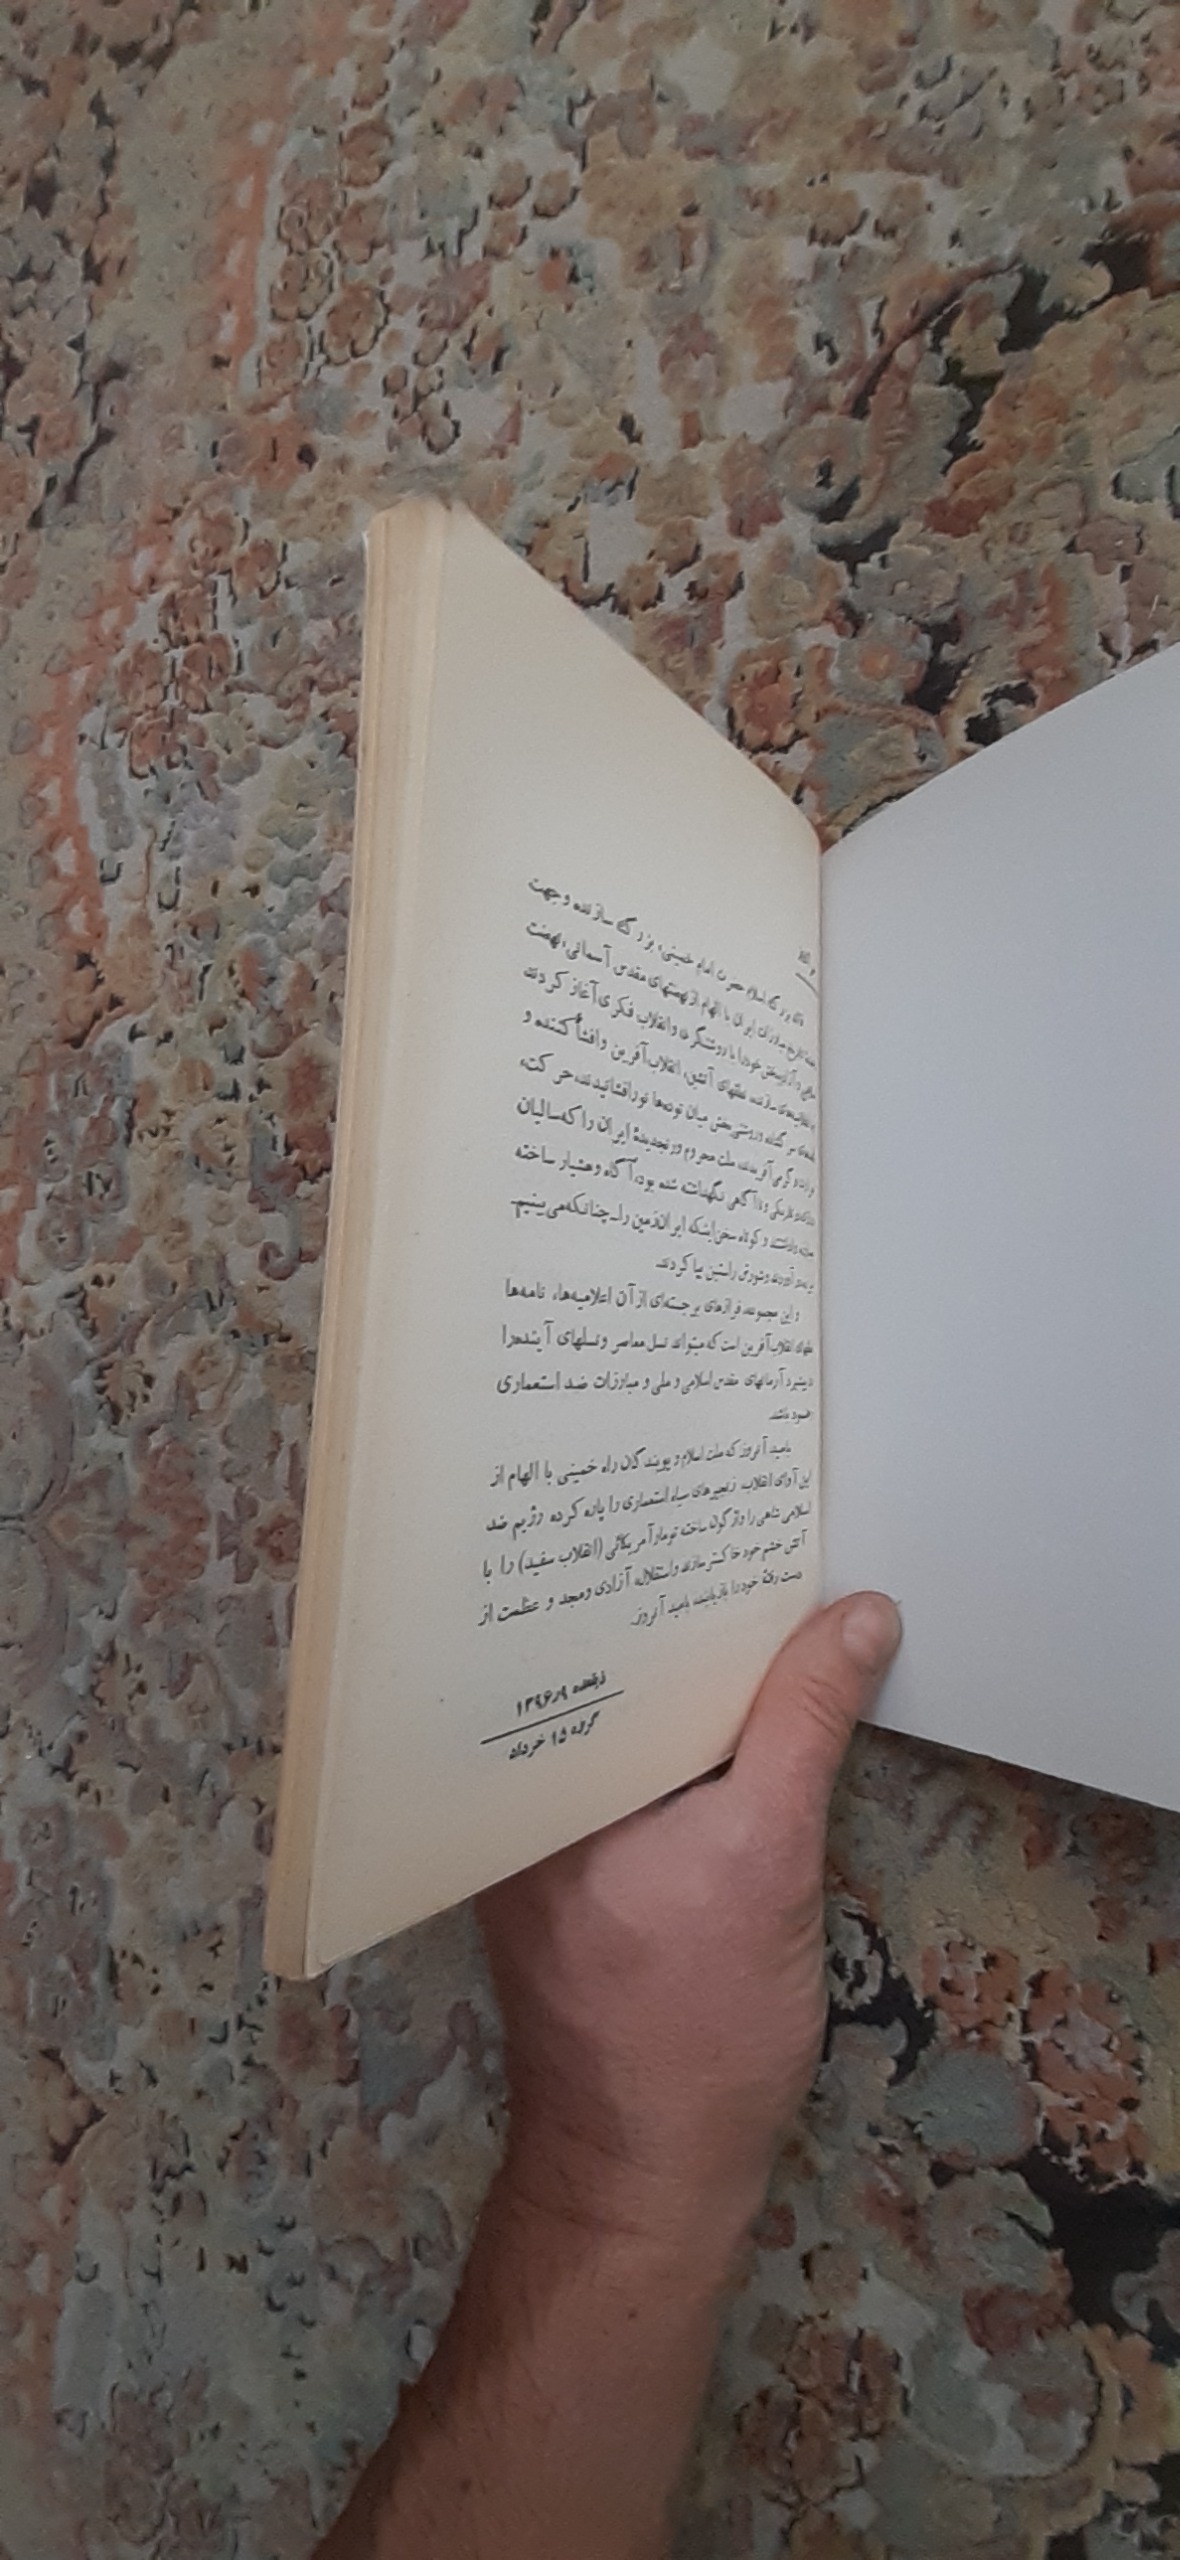 قائد بزرگ اسلام حضرت امام خمینی، بزرگ سازنده و جهت
تاریخ مبارزات ایران با الهام از نهضتهای مقدس آسمانی، نهضت
و آزادیبخش خود را با روشنگری و انقلاب فکری آغاز کردند
سازنده، نطقهای آتشین، انقلاب‌آفرین و افشاء کننده و
سرگشاده و روشنی‌بخش میان توده‌ها نور افشانیدند، حرکت،
و گرمی آفریدند، ملت محروم و رنجدیدهٔ ایران را که سالیان
تاریکی و ناآگاهی نگهداشته شده بود، آگاه و هشیار ساخته
واداشتند و کوتاه سخن اینکه ایران‌زمین را ـ چنانکه می‌بینیم ـ
آوردند و شورش راستین بپا کردند.
و این مجموعه، فرازهای برجسته‌ای از آن اعلامیه‌ها، نامه‌ها
انقلاب‌آفرین است که میتواند نسل معاصر و نسلهای آینده را
پیشبرد آرمانهای مقدس اسلامی و ملی و مبارزات ضد استعماری
باشد.
بامید آنروز که ملت اسلام و پویندگان راه خمینی با الهام از
این آوای انقلاب، زنجیرهای سیاه استعماری را پاره کرده رژیم ضد
اسلامی شاهی را واژگون ساخته تومار آمریکائی (انقلاب سفید) را با
آتش خشم خود خاکستر سازند و استقلال، آزادی و مجد و عظمت از
دست رفتهٔ خود را بازیابند، بامید آنروز.
ذیقعده ۱۳۹۶/۹
گروه ۱۵ خرداد